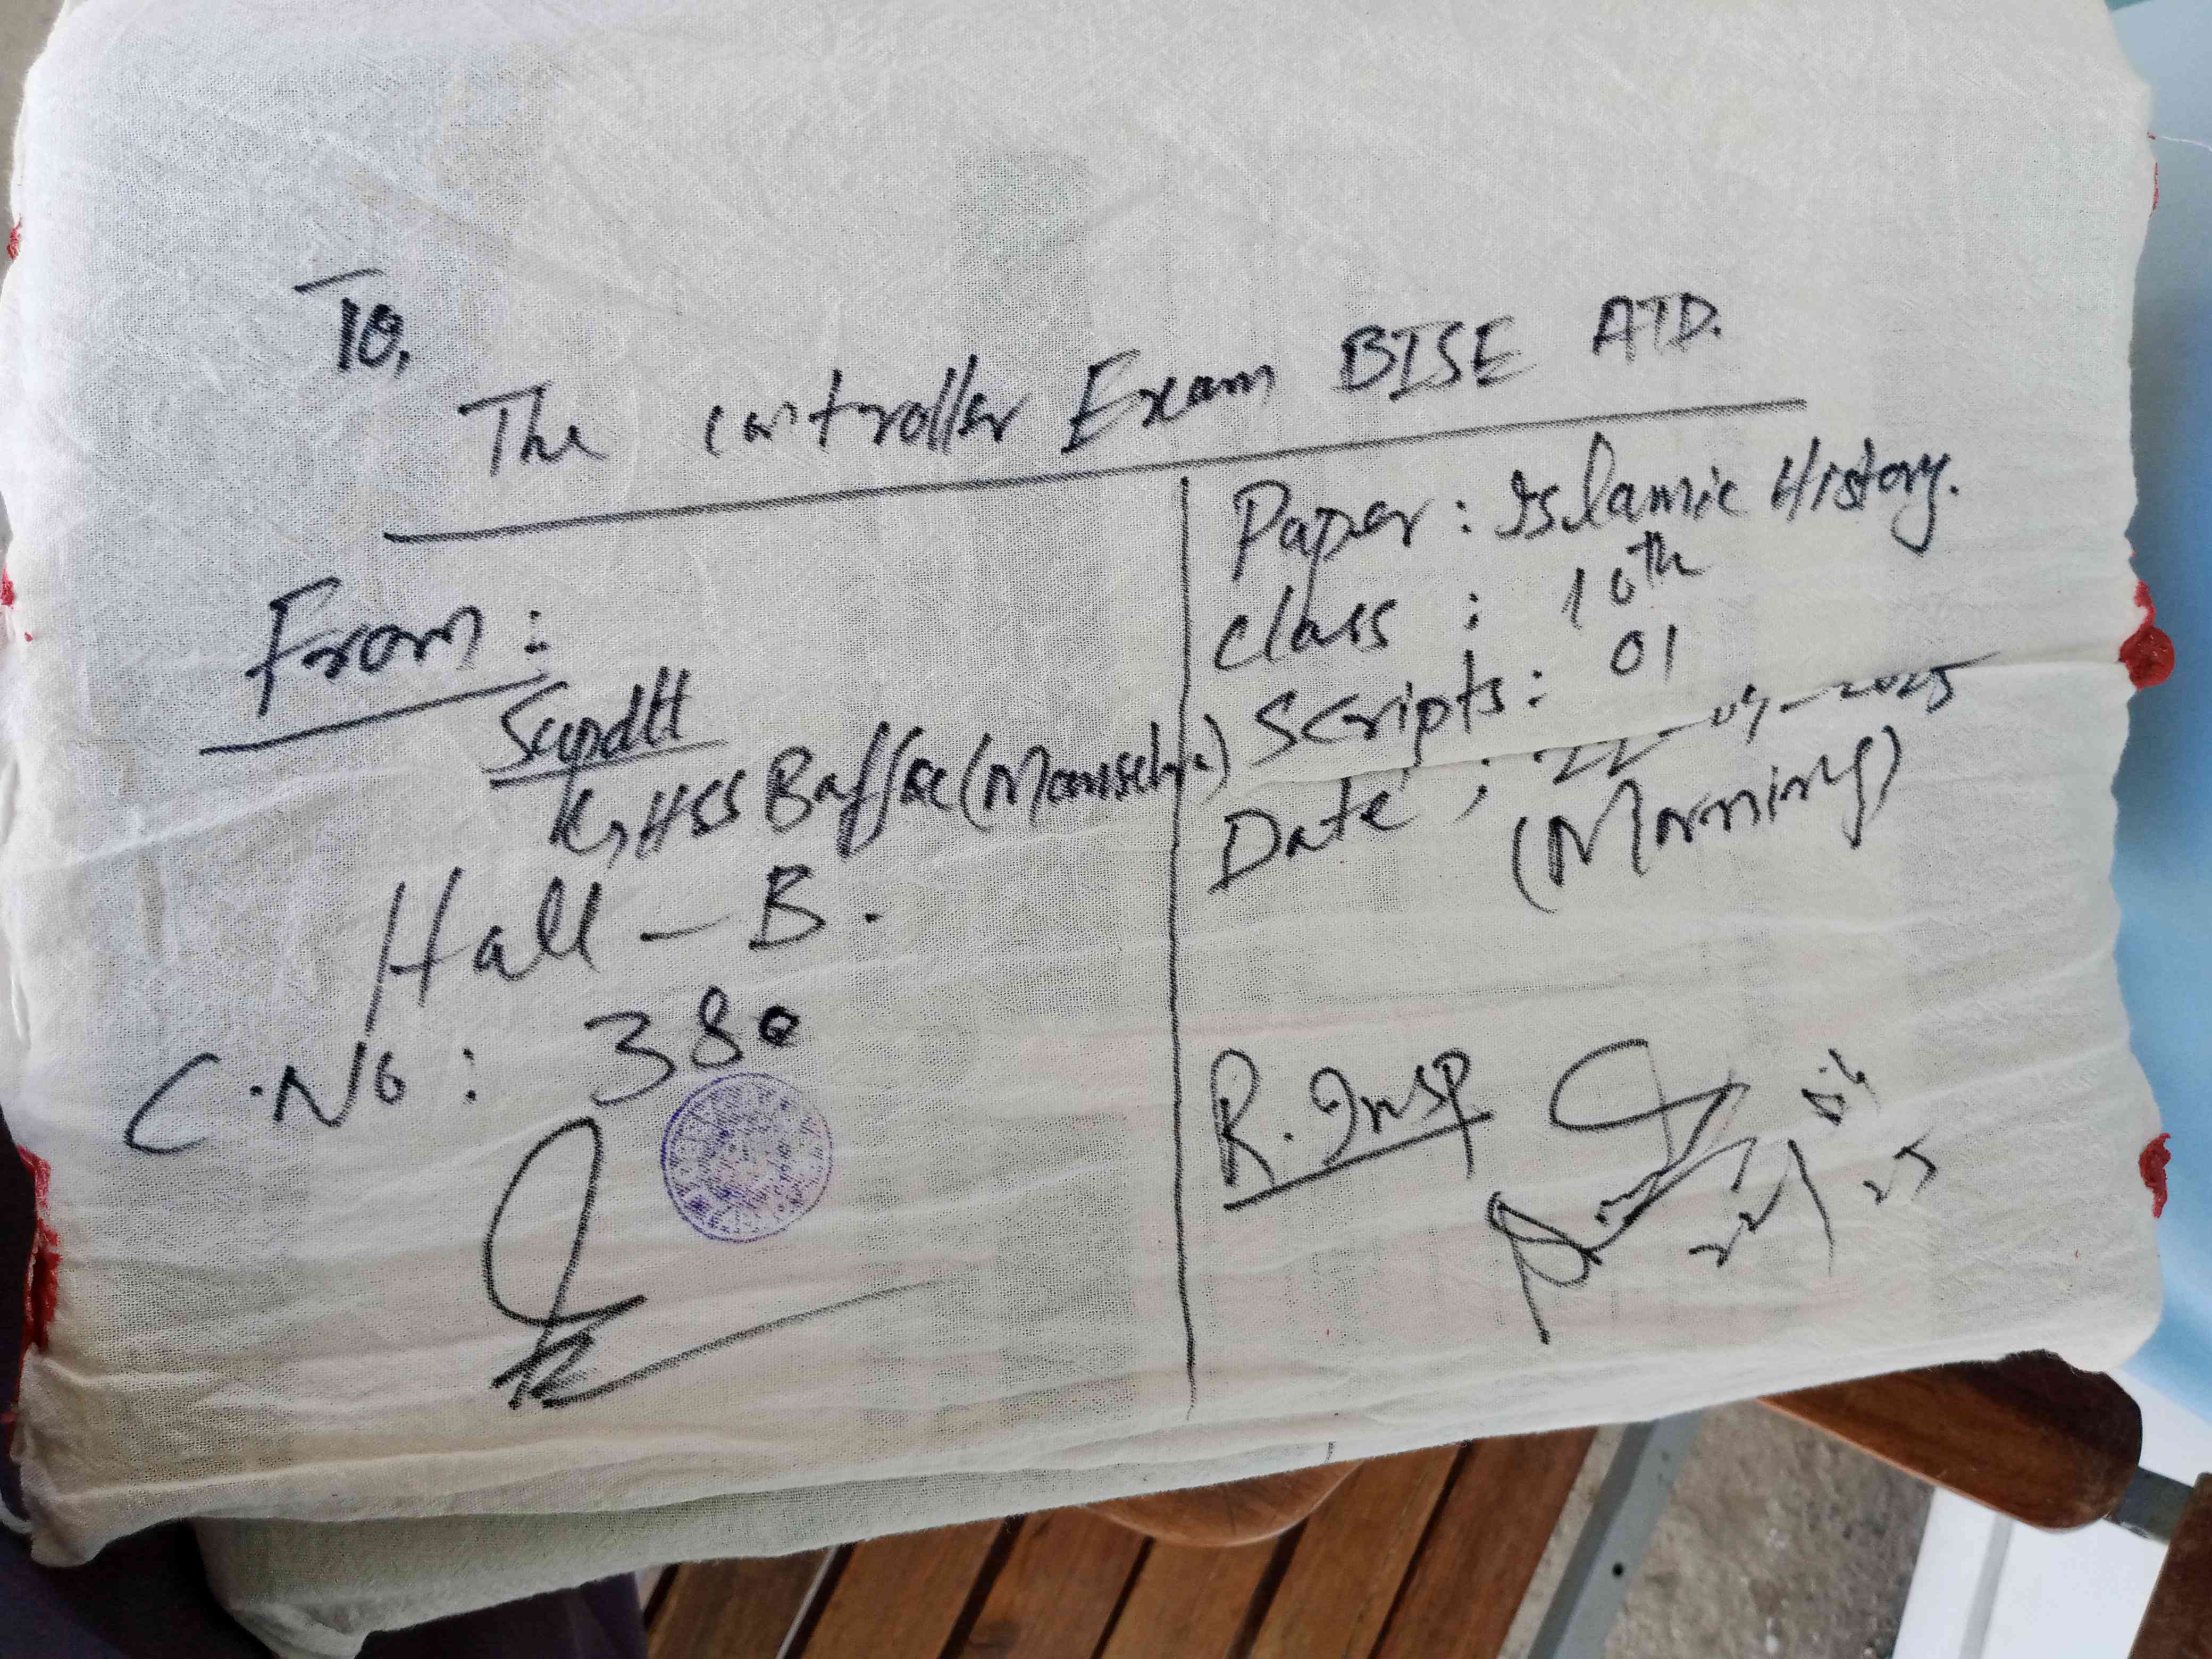 To,
The Controller Exam BISE ATD.
From:
Supdtt
GHSS Baffa (Mansehra)
Hall - B.
C.No: 380
Paper: Islamic History.
Class: 10th
Scripts: 01
Date: 22-04-2025
(Morning)
R. Insp